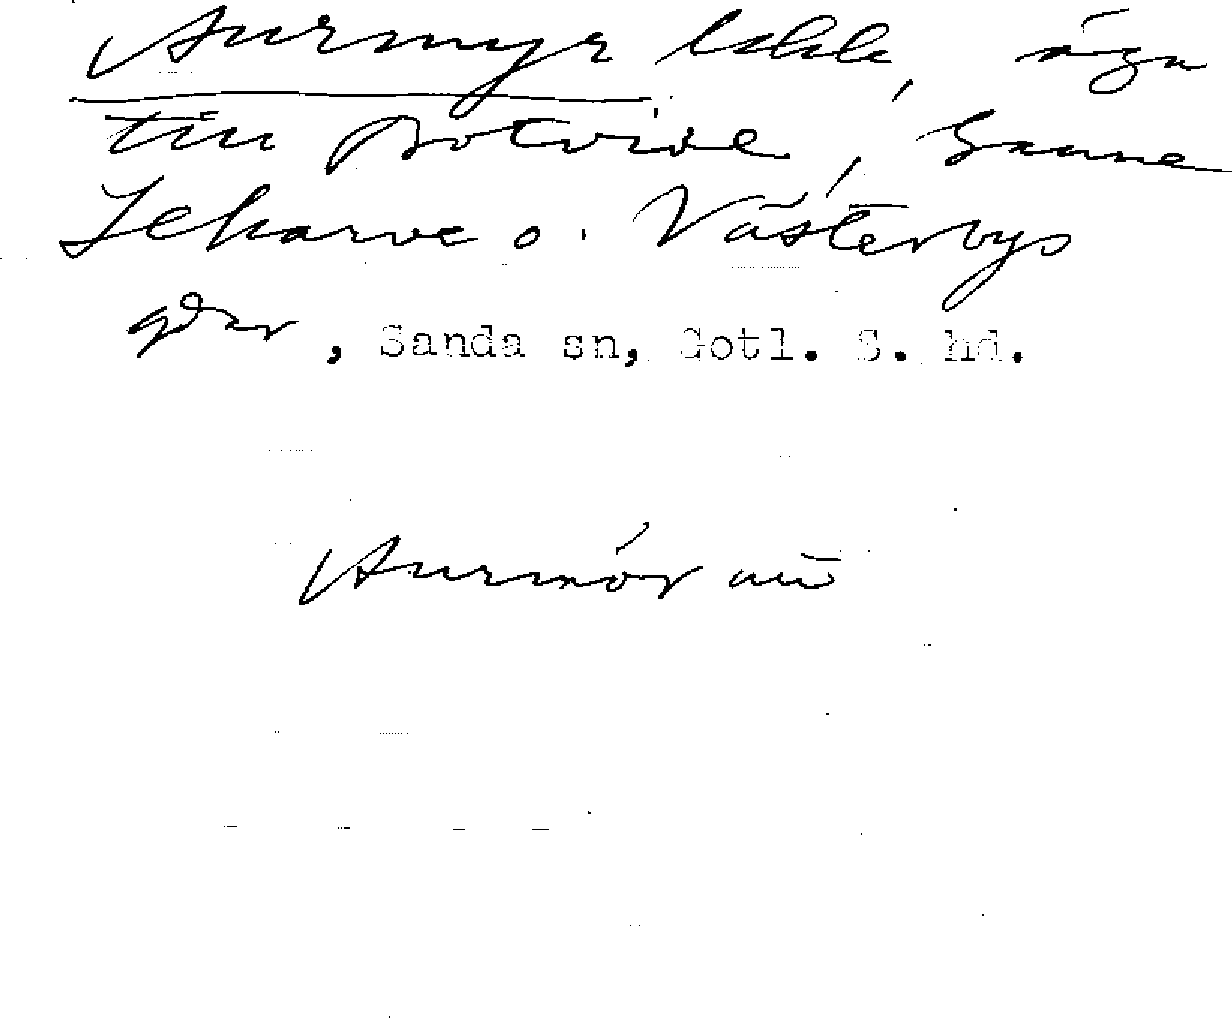 Aurmyr täkt, äga
till Botvide, Sanne
Lekarve o. Västerbys
gdar, Sanda sn, Gotl. S. hd.
Aurmör